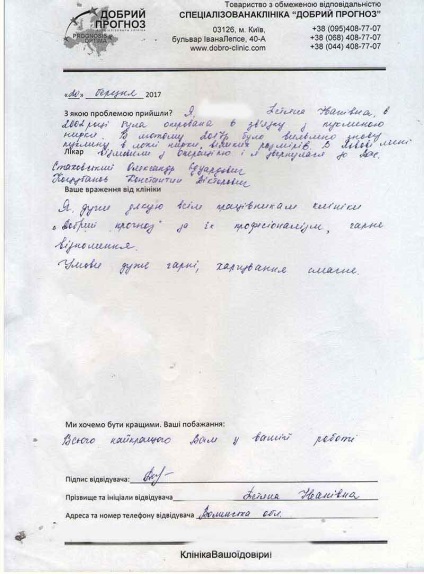 ДОБРИЙ
ПРОГНОЗ
PROGNOSIS
OPTIMA
Товариство з обмеженою відповідальністю
СПЕЦІАЛІЗОВАНАКЛІНІКА "ДОБРИЙ ПРОГНОЗ"
03126, м. Київ,
бульвар ІванаЛепсе, 40-А
www.dobro-clinic.com
+38 (095)408-77-07
+38 (068) 408-77-07
+38 (044) 408-77-07
березня 2017
З якою проблемою прийшли? Я, Іванівна, в
2002 році була оперована в зв'язку з пухлиною
нирки. В лютому 2017р було виявлено знову
пухлину в нирки, великих розмірів. В мені
Лікар відмовили у операцією і я звернулася до Вас.
Стаховський Олександр Едуардович
Константин Вікторович
Ваше враження від клініки
Я дуже дякую всім працівникам клініки
"Добрий прогноз" за їх професіоналізм, гарне
відношення.
Умови дуже гарні, харчування смачне.
Ми хочемо бути кращими. Ваші побажання:
Всього найкращого Вам у вашій роботі
Підпис відвідувача:
Прізвище та ініціали відвідувача Іванівна
Адреса та номер телефону відвідувача Волинська обл.
КлінікаВашоїдовіри!